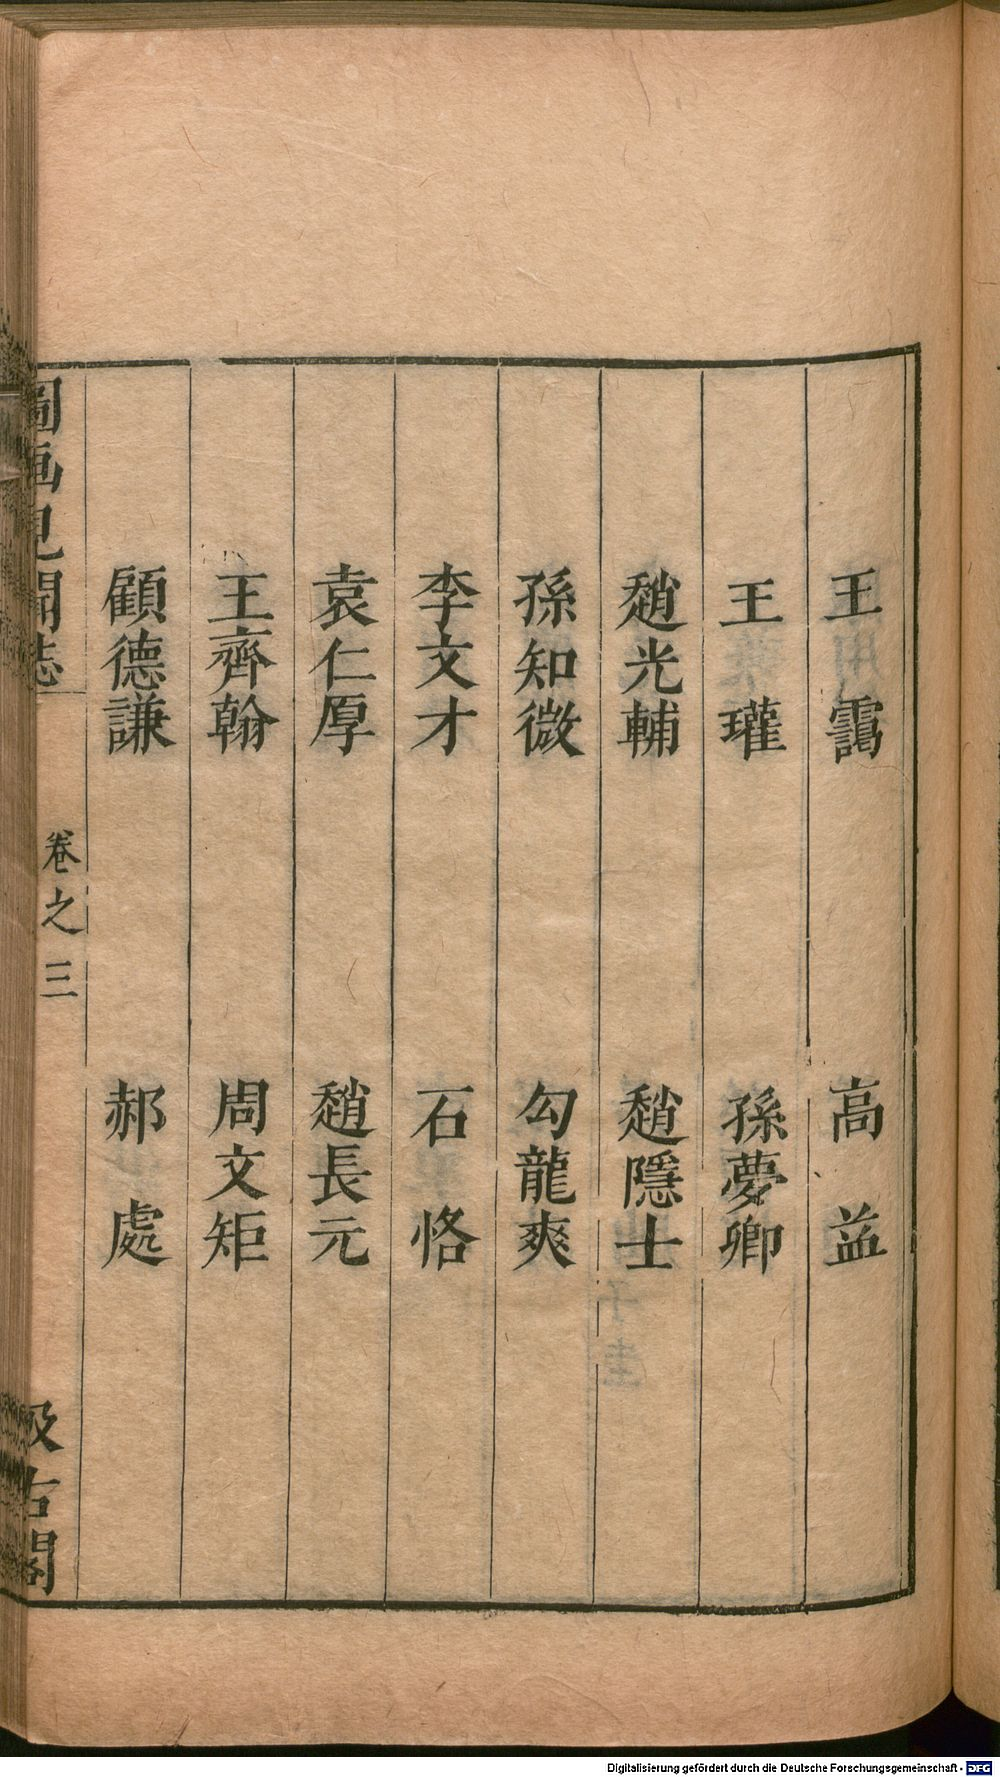 王靄　高益
王瓘　孫夢卿
趙光輔　趙隱士
孫知微　勾龍爽
李文才　石恪
袁仁厚　趙長元
王齊翰　周文矩
顧德謙　郝處
圖画見聞志　卷之三　汲古閣
Digitalisierung gefördert durch die Deutsche Forschungsgemeinschaft - DFG